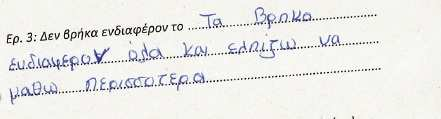 Ερ. 3: Δεν βρήκα ενδιαφέρον το Τα Βρηκα
ενδιαφερον όλα και ελπιζω να
μαθω περισσοτερα